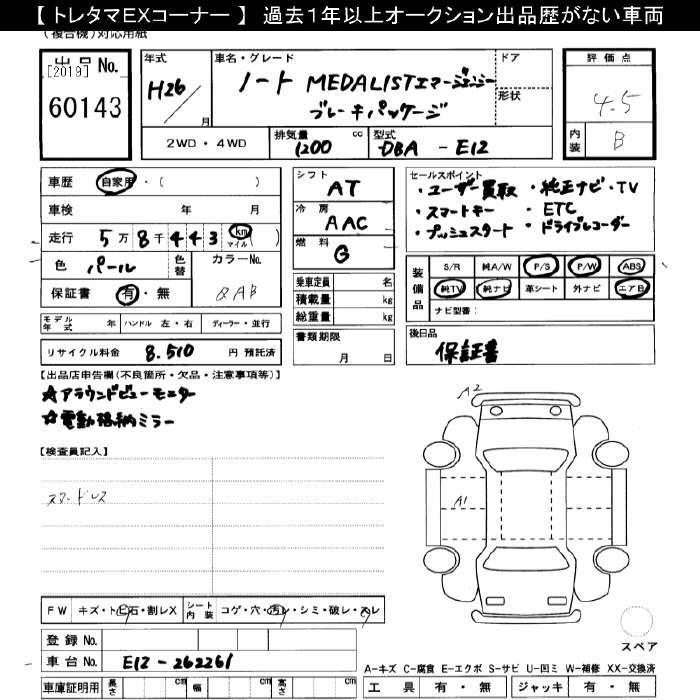 【 トレタマEXコーナー 】 過去1年以上オークション出品歴がない車両
(複合機)対応用紙
出品 No.
[2019]
60143
年式
H26
月
車名・グレード
ノート MEDALISTエマージェンシー
ブレーキパッケージ
ドア
形状
評価点
4.5
内装 B
2WD・4WD
排気量 1200 cc
型式 DBA - E12
車歴 自家用・( )
車検 年 月
走行 5万 8千 4 4 3 km マイル ( )
色 パール 色替
カラーNo.
QAB
保証書 有・無
シフト
AT
冷房
AAC
燃料
G
セールスポイント
・ユーザー買取 ・純正ナビ・TV
・スマートキー ・ETC
・プッシュスタート ・ドライブレコーダー
装備品
S/R 純A/W P/S P/W ABS
純TV 純ナビ 革シート 外ナビ エアB
ナビ型番:
乗車定員 名
積載量 kg
総重量 kg
書類期限
月 日
モデル年式 年 ハンドル 左・右 ディーラー・並行
リサイクル料金 8.510 円 預託済
後日品
保証書
【出品店申告欄(不良箇所・欠品・注意事項等)】
☆アラウンドビューモニター
☆電動格納ミラー
【検査員記入】
スマードレス
A2
A1
FW キズ・トビ石・割レX
シート内装 コゲ・穴・汚レ・シミ・破レ・スレ
登録 No.
車台 No. E12-262261
車庫証明用 長さ cm 幅 cm 高さ cm
スペア
A-キズ C-腐食 E-エクボ S-サビ U-凹ミ W-補修 XX-交換済
工具 有・無 ジャッキ 有・無